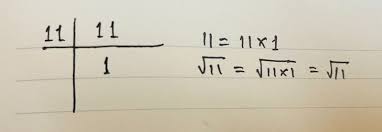 11 | 11
1
11 = 11 × 1
√11 = √11×1 = √11